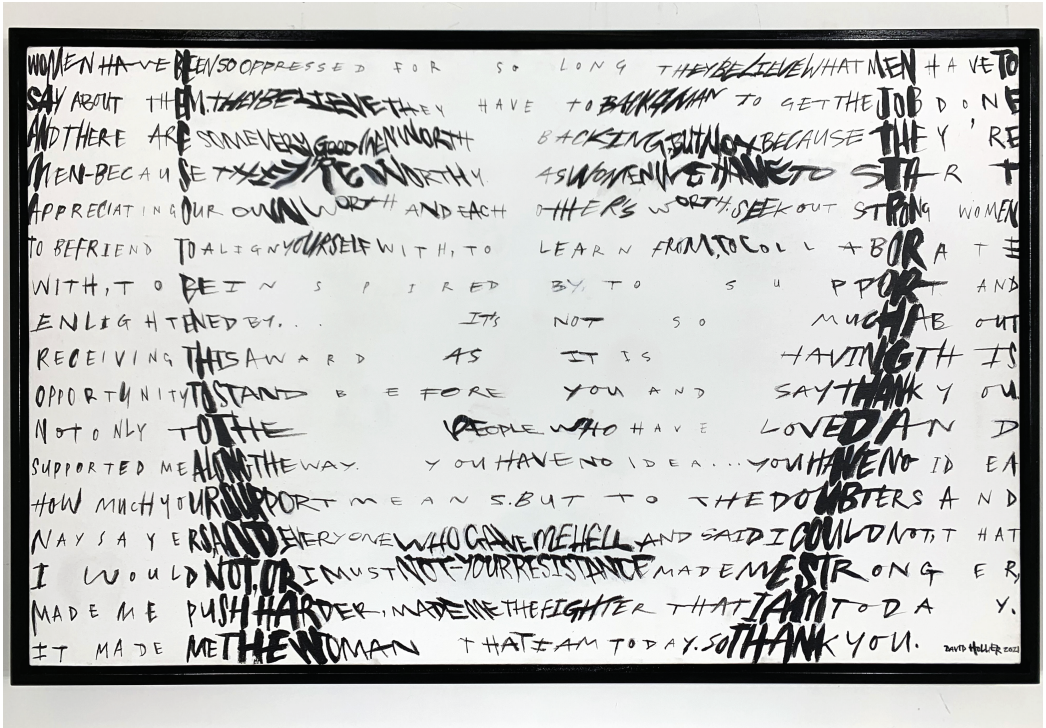 WOMEN HAVE BEEN SO OPPRESSED FOR SO LONG THEY BELIEVE WHAT MEN HAVE TO
SAY ABOUT THEM. THEY BELIEVE THEY HAVE TO BACK A MAN TO GET THE JOB DONE
AND THERE ARE SOME VERY GOOD MEN WORTH BACKING, BUT NOT BECAUSE THEY'RE
MEN-BECAUSE THEY'RE WORTHY. AS WOMEN WE HAVE TO START
APPRECIATING OUR OWN WORTH AND EACH OTHER'S WORTH. SEEK OUT STRONG WOMEN
TO BEFRIEND TO ALIGN YOURSELF WITH, TO LEARN FROM, TO COLLABORATE
WITH, TO BE INSPIRED BY. TO SUPPORT AND
ENLIGHTENED BY... IT'S NOT SO MUCH ABOUT
RECEIVING THIS AWARD AS IT IS HAVING THIS
OPPORTUNITY TO STAND BEFORE YOU AND SAY THANK YOU
NOT ONLY TO THE PEOPLE WHO HAVE LOVED AND
SUPPORTED ME ALONG THE WAY. YOU HAVE NO IDEA...YOU HAVE NO IDEA
HOW MUCH YOUR SUPPORT MEANS. BUT TO THE DOUBTERS AND
NAYSAYERS AND EVERYONE WHO GAVE ME HELL AND SAID I COULD NOT, THAT
I WOULD NOT, OR I MUST NOT-YOUR RESISTANCE MADE ME STRONGER,
MADE ME PUSH HARDER, MADE ME THE FIGHTER THAT I AM TODAY.
IT MADE ME THE WOMAN THAT I AM TODAY. SO THANK YOU.
DAVID HOLLIER 2021